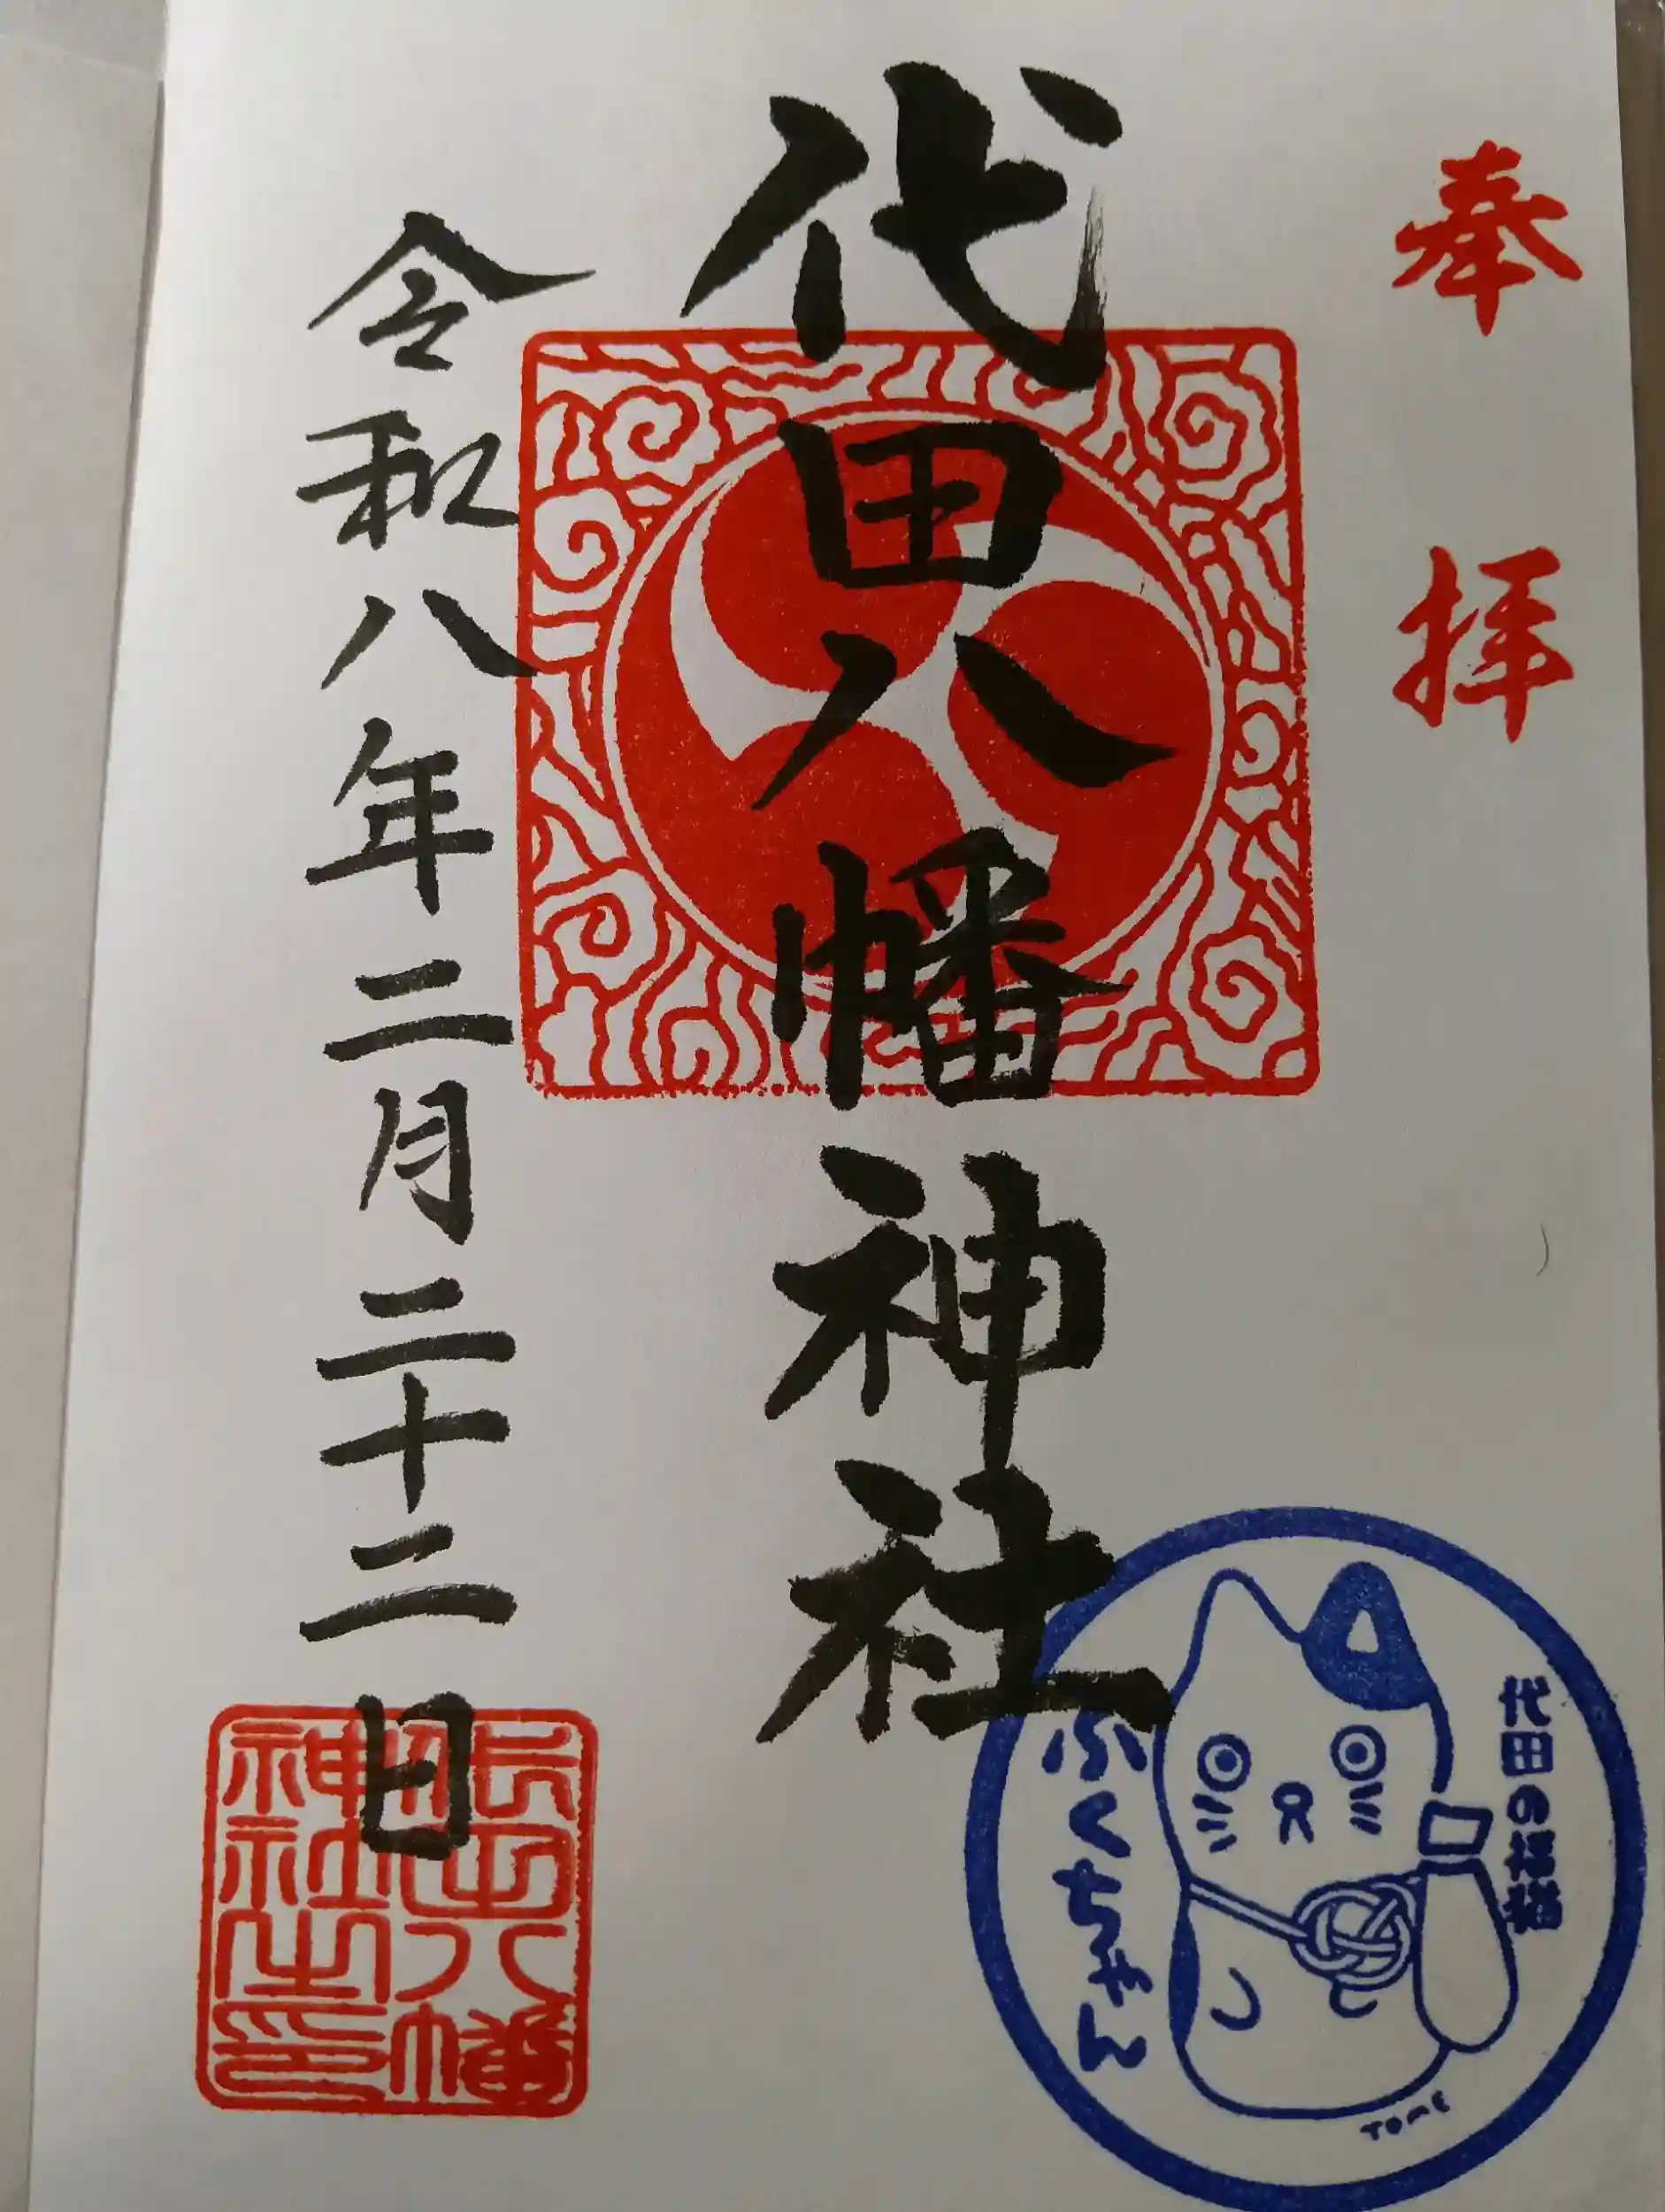 奉拝
代田八幡神社
令和八年二月二十二日
代田八幡
神社之印
代田の招福猫
ふくちゃん
TOME